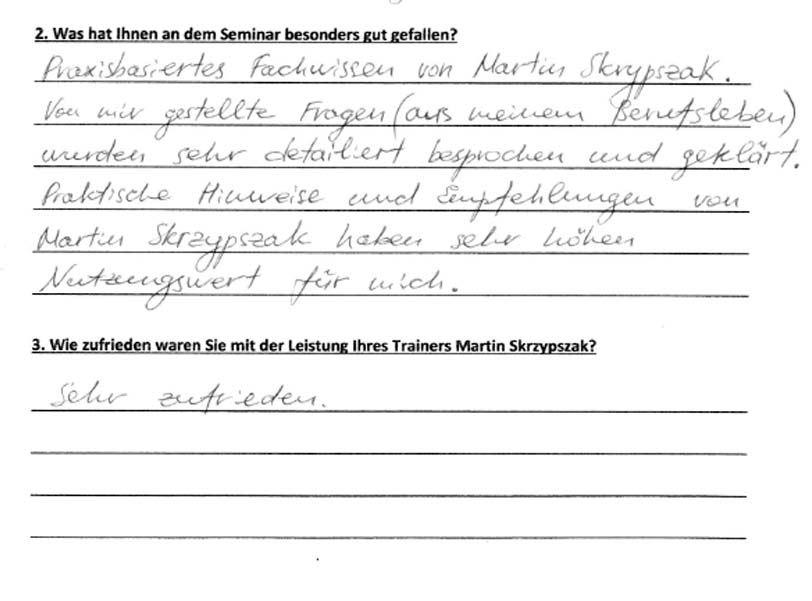 2. Was hat Ihnen an dem Seminar besonders gut gefallen?
Praxisbasiertes Fachwissen von Martin Skrypszak.
Von mir gestellte Fragen (aus meinem Berufsleben)
wurden sehr detailiert besprochen und geklärt.
Praktische Hinweise und Empfehlungen von
Martin Skrzypszak haben sehr hohen
Nutzungswert für mich.
3. Wie zufrieden waren Sie mit der Leistung Ihres Trainers Martin Skrzypszak?
Sehr zufrieden.